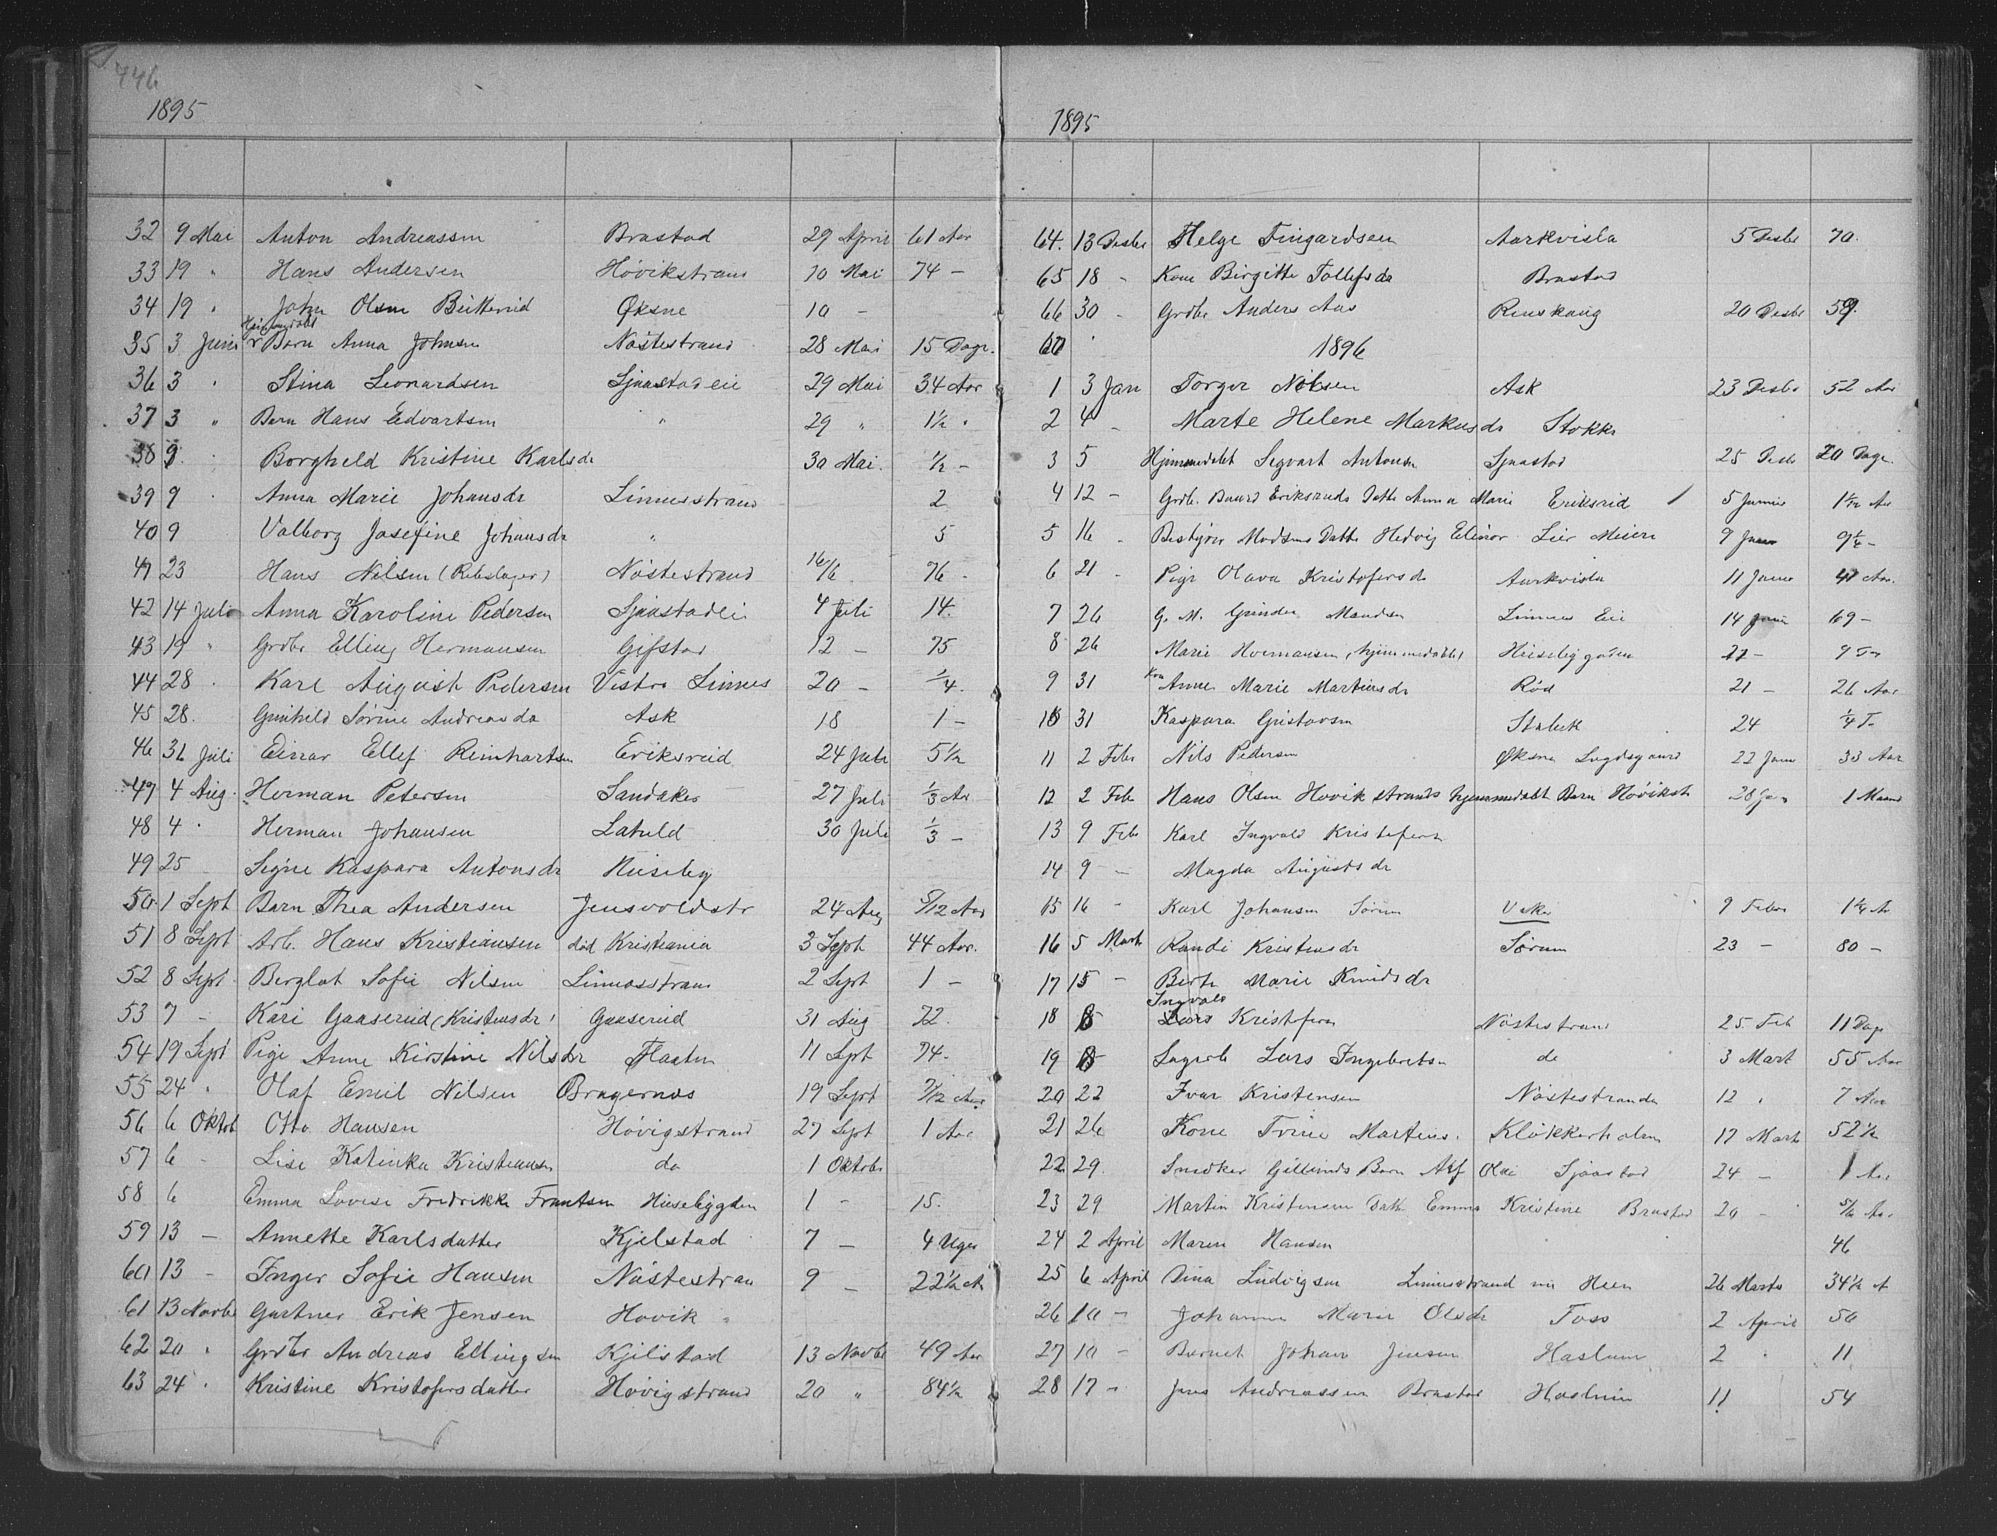 446
1895
32 9 Mai Anton Andreassen Brastad 29 April 61 Aar
33 19 " Hans Andersen Høvikstrand 10 Mai 74 -
34 19 " John Olsen Øksne 10 -
35 3 Juni Hjemmedøbt Barn Anna Johnsen Nøstestrand 28 Mai 15 Dage.
36 3 " Stina Leonardsen Sjaastadeie 29 Mai 34 Aar
37 3 " Barn Hans Edvartsen " 29 " 1½ "
38 9 Borghild Kristine Karlsdr 30 Mai ½ -
39 9 Anna Marie Johansdr Linnesstrand 2
40 9 Valborg Josefine Johansdr " 5
41 23 Hans Nilsen (Rebslager) Nøstestrand 16/6 76 -
42 14 Juli Anna Karoline Pedersen Sjaastadeie 4 Juli 14.
43 19 " Grdbr Elling Hermansen Gifstad 12 - 75
44 28 Karl August Pedersen Vestre Linnes 20 - ¼.
45 28. Gunhild Sørine Andreasdr Ask 18 1 -
46 31 Juli Einar Ellef Reinhartsen Eriksrud 24 Juli 5½
47 4 Aug. Herman Petersen Sandaker 27 Juli ⅓ Aar
48 4 " Herman Johansen Laheld 30 Juli ⅓ -
49 25 Signe Kaspara Antonsdr Huseby
50 1 Sept Barn Thea Andersen Jensvoldstr 24 Aug 5/12 Aar
51 8 Sept Arb. Hans Kristiansen død Kristiania 3 Sept 44 Aar.
52 8 Sept Berglot Sofie Nilsen Linnesstrand 2 Sept 1 -
53 7 - Kari Gaaserud (Kristensdr) Gaaserud 31 Aug 72.
54 19 Sept Pige Anne Kirstine Nilsdr Flaaten 11 Sept 74.
55 24 " Olaf Emil Nilsen Bragernæs 19 Sept 7/12 Aar
56 6 Oktob Otto Hansen Høvigstrand 27 Sept 1 Aar
57 6 - Lise Katinka Kristiansen do 1 Oktober
58 6 Emma Lovise Fredrikke Frantsen Husebygden 1 - 15.
59 13 - Annette Karlsdatter Kjelstad 7 - 4 Uger
60 13 - Inger Sofie Hansen Nøstestran 9 - 22½ A
61 13 Novbr Gartner Erik Jensen Hovik "
62 20 " Grdbr Andreas Ellingsen Kjelstad 13 Novbr 49 Aar
63 24 " Kristine Kristofersdatter Høvigstrand 20 " 84½
1895
64. 13 Desbr Helge Fingardsen Aarkvisla 5 Desbr 70.
65 18 - Kone Birgitte Tollefsdr Brastad
66 30 Grdbr Anders Aas Renskaug 20 Desbr 59.
67
1896
1 3 Jan Torger Nilsen Ask 23 Desbr 52 Aar
2 4 - Marte Helene Markusdr Stokke
3 5 Hjemmedøbt Sigvart Antonsen Sjaastad 25 Desbr 20 Dage
4 12 - Grdbr. Baard Eriksruds Datter Anna Marie Eriksrud 5 Januar Aar
5 16 - Bestyrer Madsens Datter Hedvig Elinor Lier Meieri 9 Januar 9¼ -
6 21 - Pige Olava Kristofersdr Aarkvisla 11 Januar 41 Aar.
7 26 G. M. Gunder Linnes Eie 14 Januar 69 -
8 26 Marie Hermansen (hjemmedøbt) Husebygden 9
9 31 Kone Anne Marie Martinsdr Rød 21 - 26 Aar
10 31 Kaspara Gustavsen Stabek 24 ¼
11 2 Febr Nils Pedersen Øksne 22 Januar 33 Aar
12 2 Febr Hans Olsen Hovikstrands hjemmedøbt Barn Høvikstr 28 Jan 1 Maaned
13 9 Febr Karl Ingvald Kristofersen
14 9 - Magda Augustsdr
15 16 - Karl Johansen Sørum 9 Febr 1¼ A
16 5 Mart Randi Kristensdr Sørum 23 - 80 -
17 15 - Berte Marie Knudsdr
18 Ingvald Lars Kristofersen Nøstestrand 25 Feb 11 Dage
19 Lars Ingebretsen do 3 Mart 55 Aar
20 22 Ivar Kristensen Nøstestranda 12 " 7 Aar
21 26 Kone Trine Martens. Kløkkerholm 17 Mart 52½
22 29. Snedker Gillunds Barn Alf Olai Sjaastad 24 - 1 Aar
23 29 Martin Kristensens Datter Emma Kristine Brastad 20 - 5/6 Aar
24 2 April Maren Hansen 46
25 6 April Dina Ludvigsen Linnesstrand Heen 26 Marts 34½ A
26 10 - Johanne Marie Olsdr Foss 2 April 50
27 10 - Barnet Johan Jensen Haslum 2 " 11
28 17 - Jens Andreassen Brastad Haslum 11 54